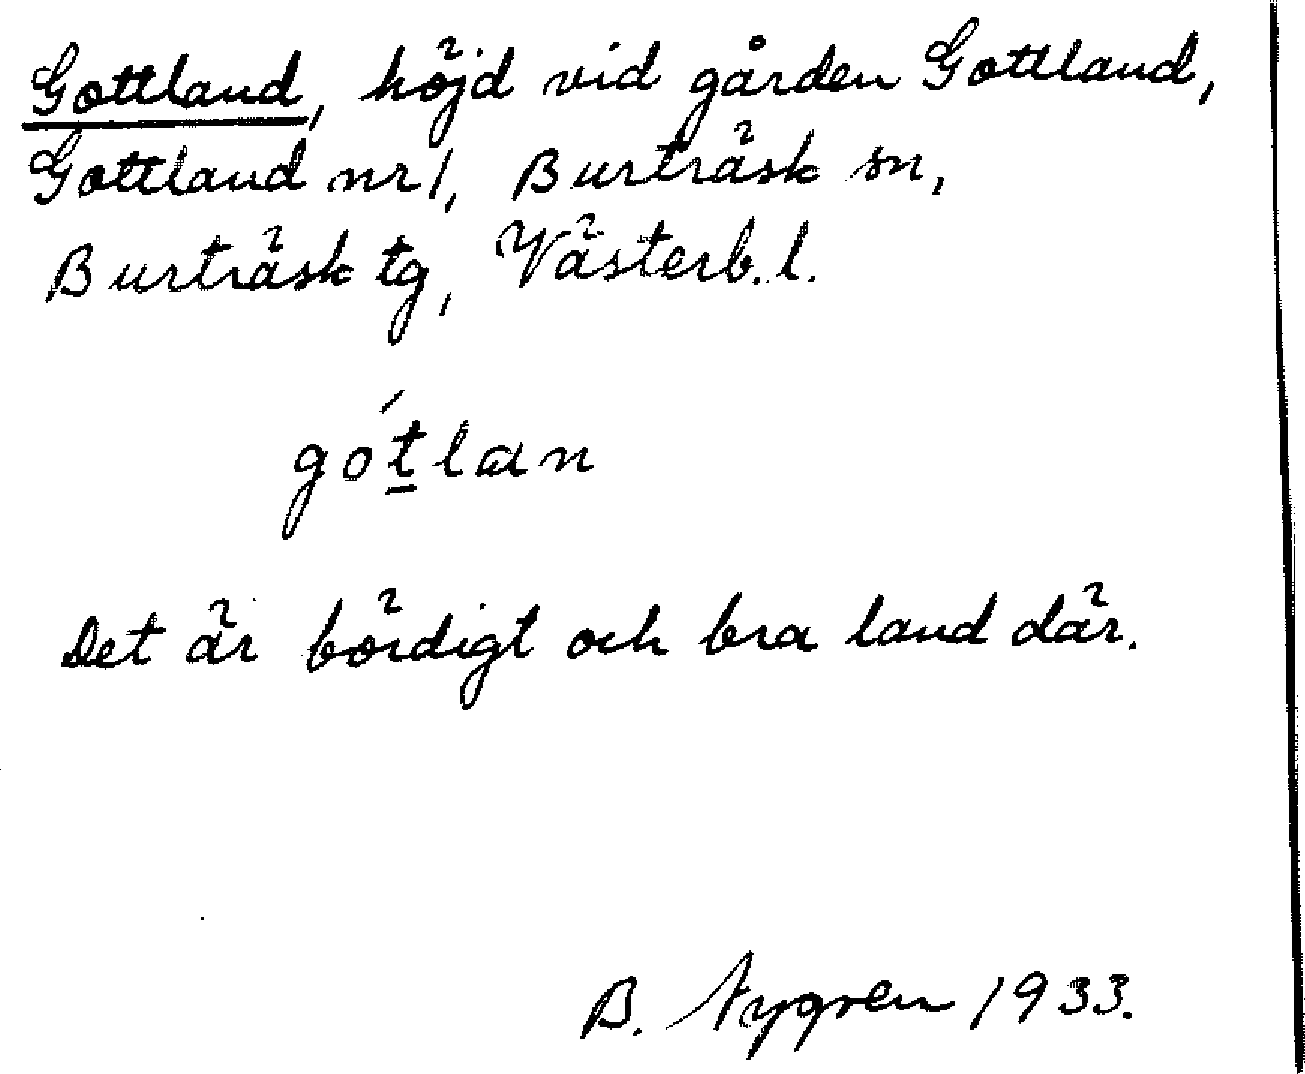 Gottland, höjd vid gården Gottland,
Gottland nr 1, Burträsk sn,
Burträsk tg, Västerb. l.
gót̲lan
Det är bördigt och bra land där.
B. Nygren 1933.